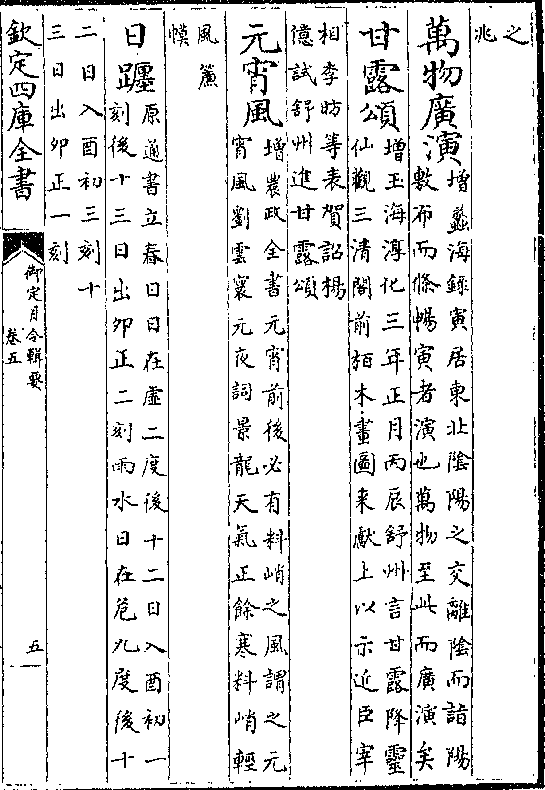 之
兆
萬物廣演增蠡海録寅居東北陰陽之交離陰而詣陽
敷布而條暢寅者演也萬物至此而廣演矣
甘露頌增玉海淳化三年正月丙辰舒州言甘露降靈
仙觀三清閣前栢木畫圖来獻上以示近臣宰
相李昉等表賀詔楊
億試舒州進甘露頌
元宵風增農政全書元宵前後必有料峭之風謂之元
宵風劉雲襄元夜詞景龍天氣正餘寒料峭輕
風簾
幙
日躔原通書立春日日在虚二度後十二日入酉初一
刻後十三日出卯正二刻雨水日在危九度後十
二日入酉初三刻十
三日出卯正一刻
欽定四庫全書
御定月令輯要
卷五
五